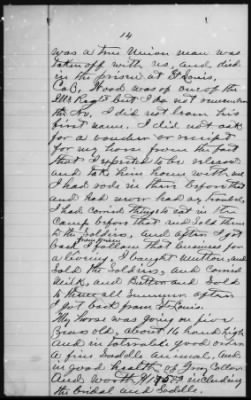 14
was a true Union man was
taken off with us, and died
in the prison at St Louis,
Col. Wood was of one of the
Ills Regts but I do not remember
the No. I did not learn his
first name. I did not ask
for a voucher or receipt
for my horse from the fact
that I expected to be released
and take him home with me
I had rode in there before that
and had never had any trouble,
I had carried things to eat in the
Camp before that and sold them
to the Soldiers, and after I got
from prison
back I followed that business for
a living, I bought Mutton, and
sold the Soldiers, and carried
Milk, and Butter and Sold
to them all summer after
I got back from St Louis.
My horse was going on five
years old, about 16 hands high
and in tolerable good order
a fine Saddle animal, and
in good health, of Gray Color
And worth $175.00 including
the bridal and Saddle.